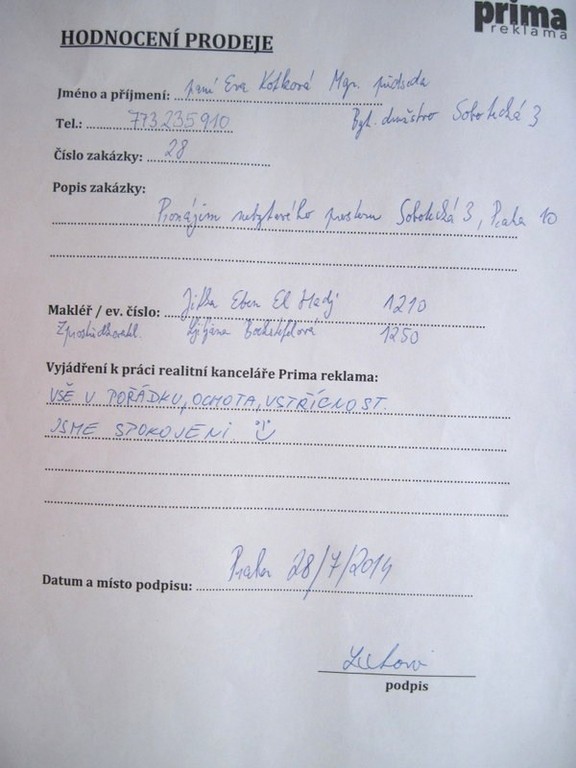 prima
reklama
HODNOCENÍ PRODEJE
Jméno a příjmení: paní Eva Kotková Mgr. předseda
Byt. družstvo Sobotecká 3
Tel.: 773235910
Číslo zakázky: 28
Popis zakázky:
Pronájem nebytového prostoru Sobotecká 3, Praha 10
Makléř / ev. číslo: Jitka Eben El Hady 1210
Zprostředkovatel. 1250
Vyjádření k práci realitní kanceláře Prima reklama:
VŠE V POŘÁDKU, OCHOTA, VSTŘÍCNOST.
JSME SPOKOJENI
Datum a místo podpisu: Praha 28/7/2014
podpis